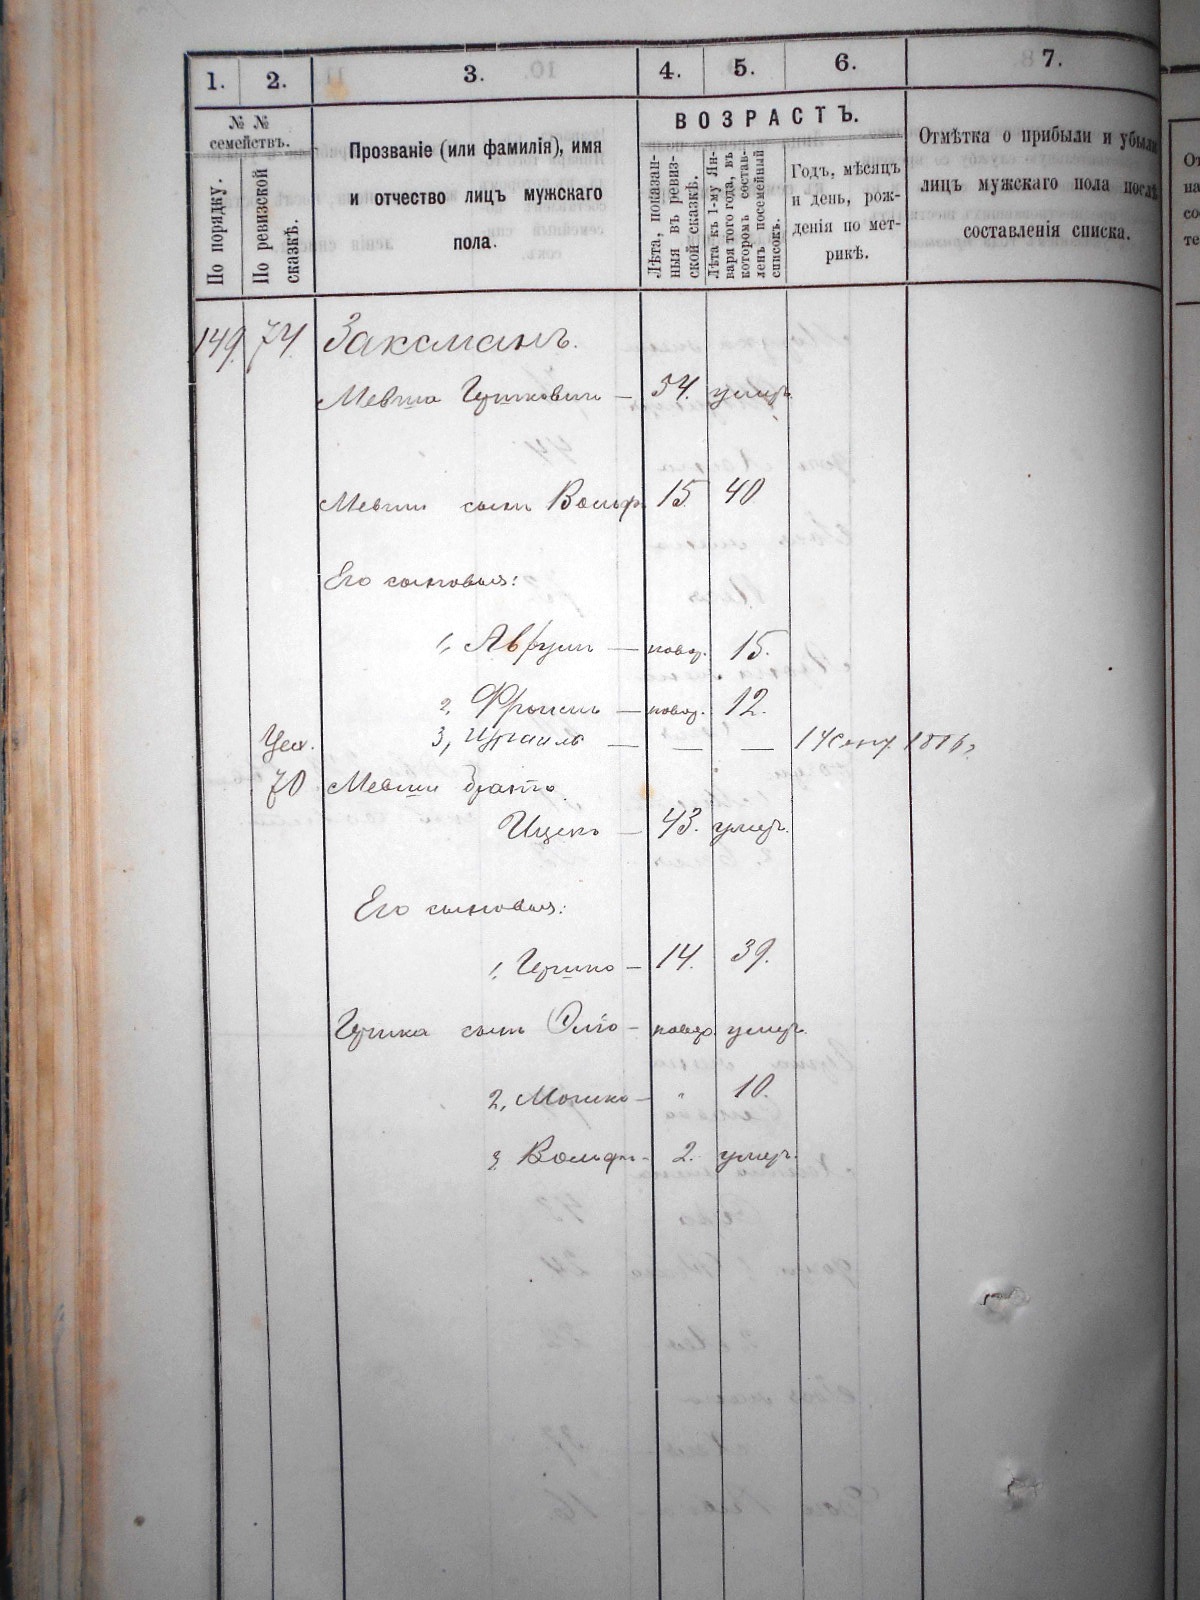 1. 2. 3. 4. 5. 6. 7.
№ № семействъ.
По порядку.
По ревизской сказкѣ.
Прозваніе (или фамилія), имя
и отчество лицъ мужскаго
пола.
ВОЗРАСТЪ.
Лѣта, показан-
ныя въ ревиз-
ской сказкѣ.
Лѣта къ 1-му Ян-
варя того года, въ
которомъ состав-
ленъ посемейный
списокъ.
Годъ, мѣсяцъ
и день, рож-
денія по мет-
рикѣ.
Отмѣтка о прибыли и убыли
лицъ мужскаго пола послѣ
составленія списка.
149. 74. Заксманъ.
Мевша Гершковичъ — 54. умеръ.
Мевши сынъ Вольф 15 40
Его сыновья:
1, Аврумъ — новор. 15.
2, Фроимъ — новор. 12.
3, Израиль — — —
70 Мевши братъ
Ицекъ — 43. умеръ.
Его сыновья:
1, Гершко — 14. 39.
Гершка сынъ — новор. умеръ.
2, Мошко — " 10.
3, Вольфъ - 2. умеръ.